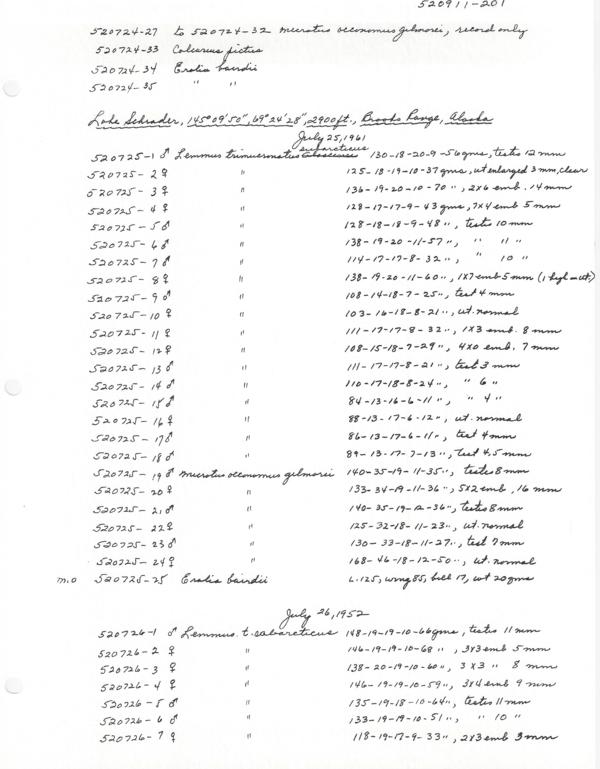 520911-201
520724-27 to 520724-32 microtus oeconomus gilmorei, record only
520724-33 Calcarius pictus
520724-34 Erolia bairdii
520724-35 " "
Lake Schrader, 145° 09' 50", 69° 24' 28", 2900 ft., Brooks Range, Alaska
July 25, 1961
subarcticus
520725-1 ♂ Lemmus trimucronatus 130-18-20-9-56 gms, testis 12 mm
520725-2 ♀ " 125-18-19-10-37 gms, ut enlarged 3 mm, clear
520725-3 ♀ " 136-19-20-10-70 ", 2x6 emb. 14 mm
520725-4 ♀ " 128-17-17-9-43 gms, 7x4 emb 5 mm
520725-5 ♂ " 128-18-18-9-48 ", testis 10 mm
520725-6 ♂ " 138-19-20-11-57 ", " 11 "
520725-7 ♂ " 114-17-17-8-32 ", " 10 "
520725-8 ♀ " 138-19-20-11-60 ", 1x7 emb 5 mm (1 high in ut.)
520725-9 ♂ " 108-14-18-7-25 ", test 4 mm
520725-10 ♀ " 103-16-18-8-21 ", ut. normal
520725-11 ♀ " 111-17-17-8-32 ", 1x3 emb. 8 mm
520725-12 ♀ " 108-15-18-7-29 ", 4x0 emb. 7 mm
520725-13 ♂ " 111-17-17-8-21 ", test 3 mm
520725-14 ♂ " 110-17-18-8-24 ", " 6 "
520725-15 ♂ " 84-13-16-6-11 ", " 4 "
520725-16 ♀ " 88-13-17-6-12 ", ut. normal
520725-17 ♂ " 86-13-17-6-11 ", test 4 mm
520725-18 ♂ " 89-13-17-7-13 ", test 4.5 mm
520725-19 ♂ microtus oeconomus gilmorei 140-35-19-11-35 ", testes 8 mm
520725-20 ♀ " 133-34-19-11-36 ", 5x2 emb, 16 mm
520725-21 ♂ " 140-35-19-12-36 ", testis 8 mm
520725-22 ♀ " 125-32-18-11-23 ", ut. normal
520725-23 ♂ " 130-33-18-11-27 ", test 7 mm
520725-24 ♀ " 168-46-18-12-50 ", ut. normal
m.o 520725-25 Erolia bairdii L. 125, wing 85, bill 17, wt 20 gms
July 26, 1952
520726-1 ♂ Lemmus. t. subarcticus 148-19-19-10-66 gms, testis 11 mm
520726-2 ♀ " 146-19-19-10-68 ", 3x3 emb 5 mm
520726-3 ♀ " 138-20-19-10-60 ", 3x3 " 8 mm
520726-4 ♀ " 146-19-19-10-59 ", 3x4 emb 9 mm
520726-5 ♂ " 135-19-18-10-64 ", testis 11 mm
520726-6 ♂ " 133-19-19-10-51 ", " 10 "
520726-7 ♀ " 118-19-17-9-33 ", 2x3 emb 3 mm